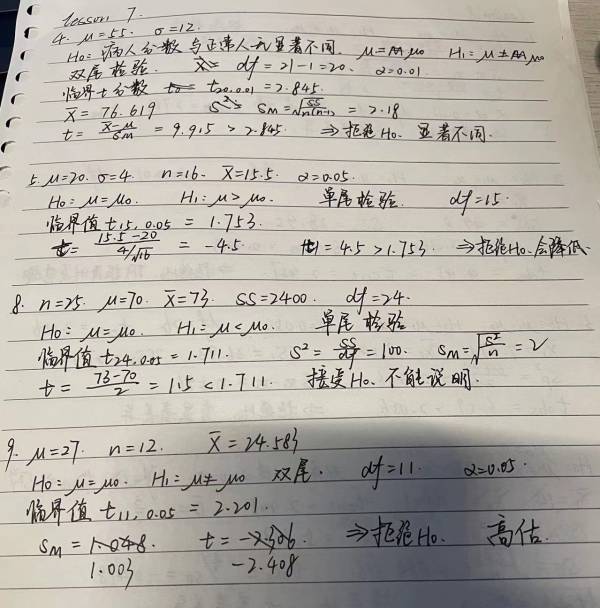 Lesson 7.
4. μ=55. σ=12.
H₀: 病人分数与正常人无显著不同. μ=μ₀ H₁: μ≠μ₀
双尾检验. df=21-1=20. α=0.01
临界t分数 t₂₀,₀.₀₁=2.845.
X̄=76.619 Sм=√(SS/n(n-1))=2.18
t=(X̄-μ)/Sм=9.915>2.845. ⇒拒绝H₀. 显著不同.
5. μ=20. σ=4. n=16. X̄=15.5. α=0.05.
H₀: μ=μ₀. H₁: μ>μ₀. 单尾检验. df=15.
临界值 t₁₅,₀.₀₅=1.753.
t=(15.5-20)/(4/√16)=-4.5. |t|=4.5>1.753. ⇒拒绝H₀.会降低.
8. n=25. μ=70. X̄=73. SS=2400. df=24.
H₀: μ=μ₀. H₁: μ<μ₀. 单尾检验
临界值 t₂₄,₀.₀₅=1.711. S²=SS/df=100. Sм=√(S²/n)=2
t=(73-70)/2=1.5<1.711. 接受H₀. 不能说明.
9. μ=27. n=12. X̄=24.583
H₀: μ=μ₀. H₁: μ≠μ₀ 双尾. df=11. α=0.05.
临界值 t₁₁,₀.₀₅=2.201.
Sм=1.048. t=-2.306. ⇒拒绝H₀. 高估.
1.003 -2.408